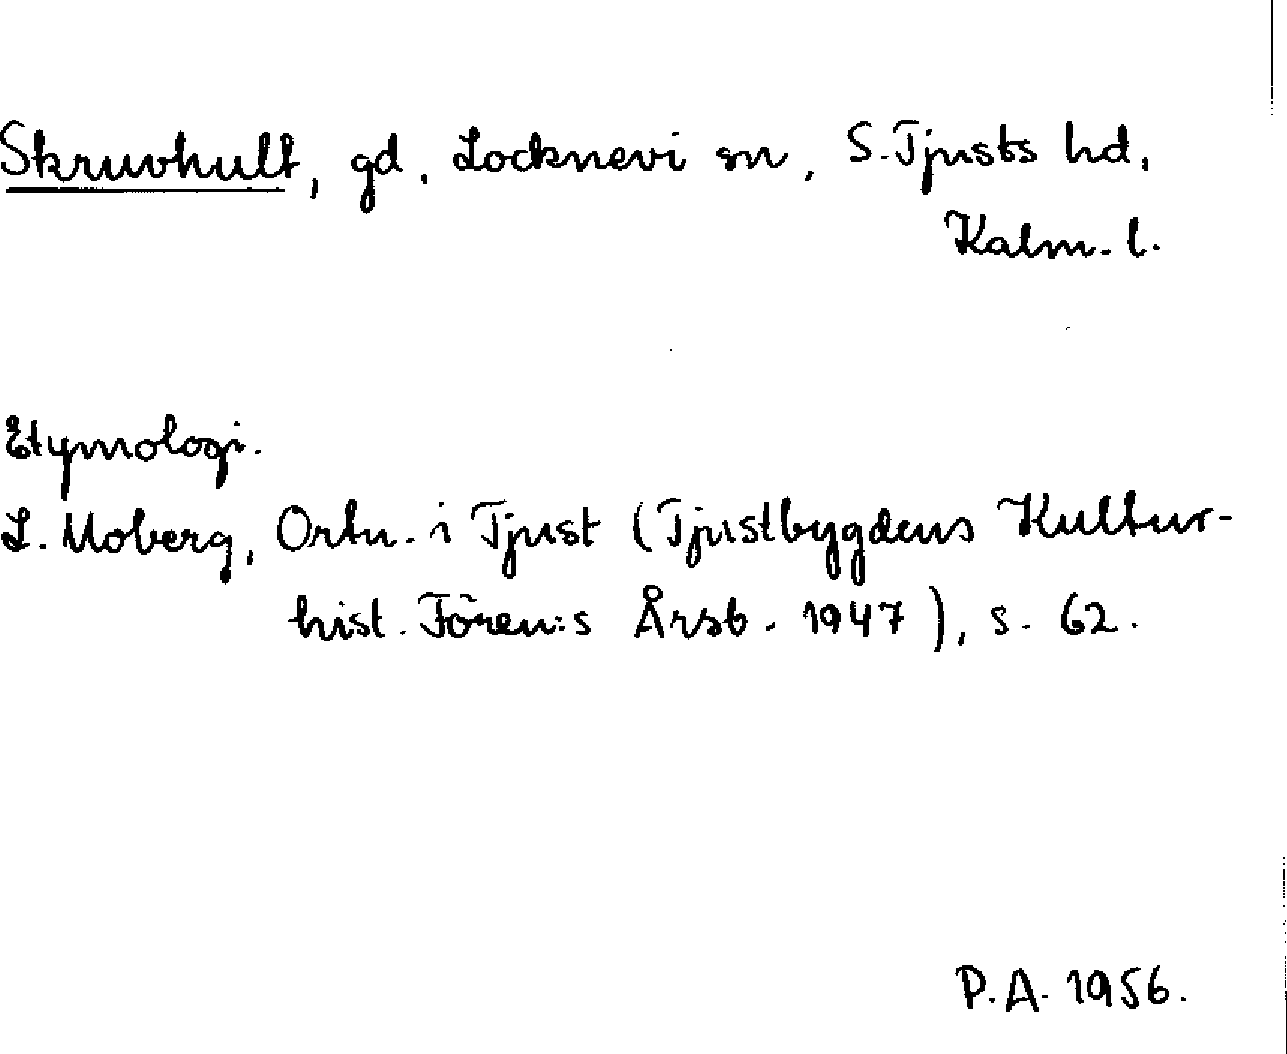 Skruvhult, gd, Locknevi sn, S. Tjusts hd,
Kalm. l.
Etymologi.
L. Moberg, Ortn. i Tjust (Tjustbygdens Kultur-
hist. Fören:s Årsb. 1947), s. 62.
P.A. 1956.